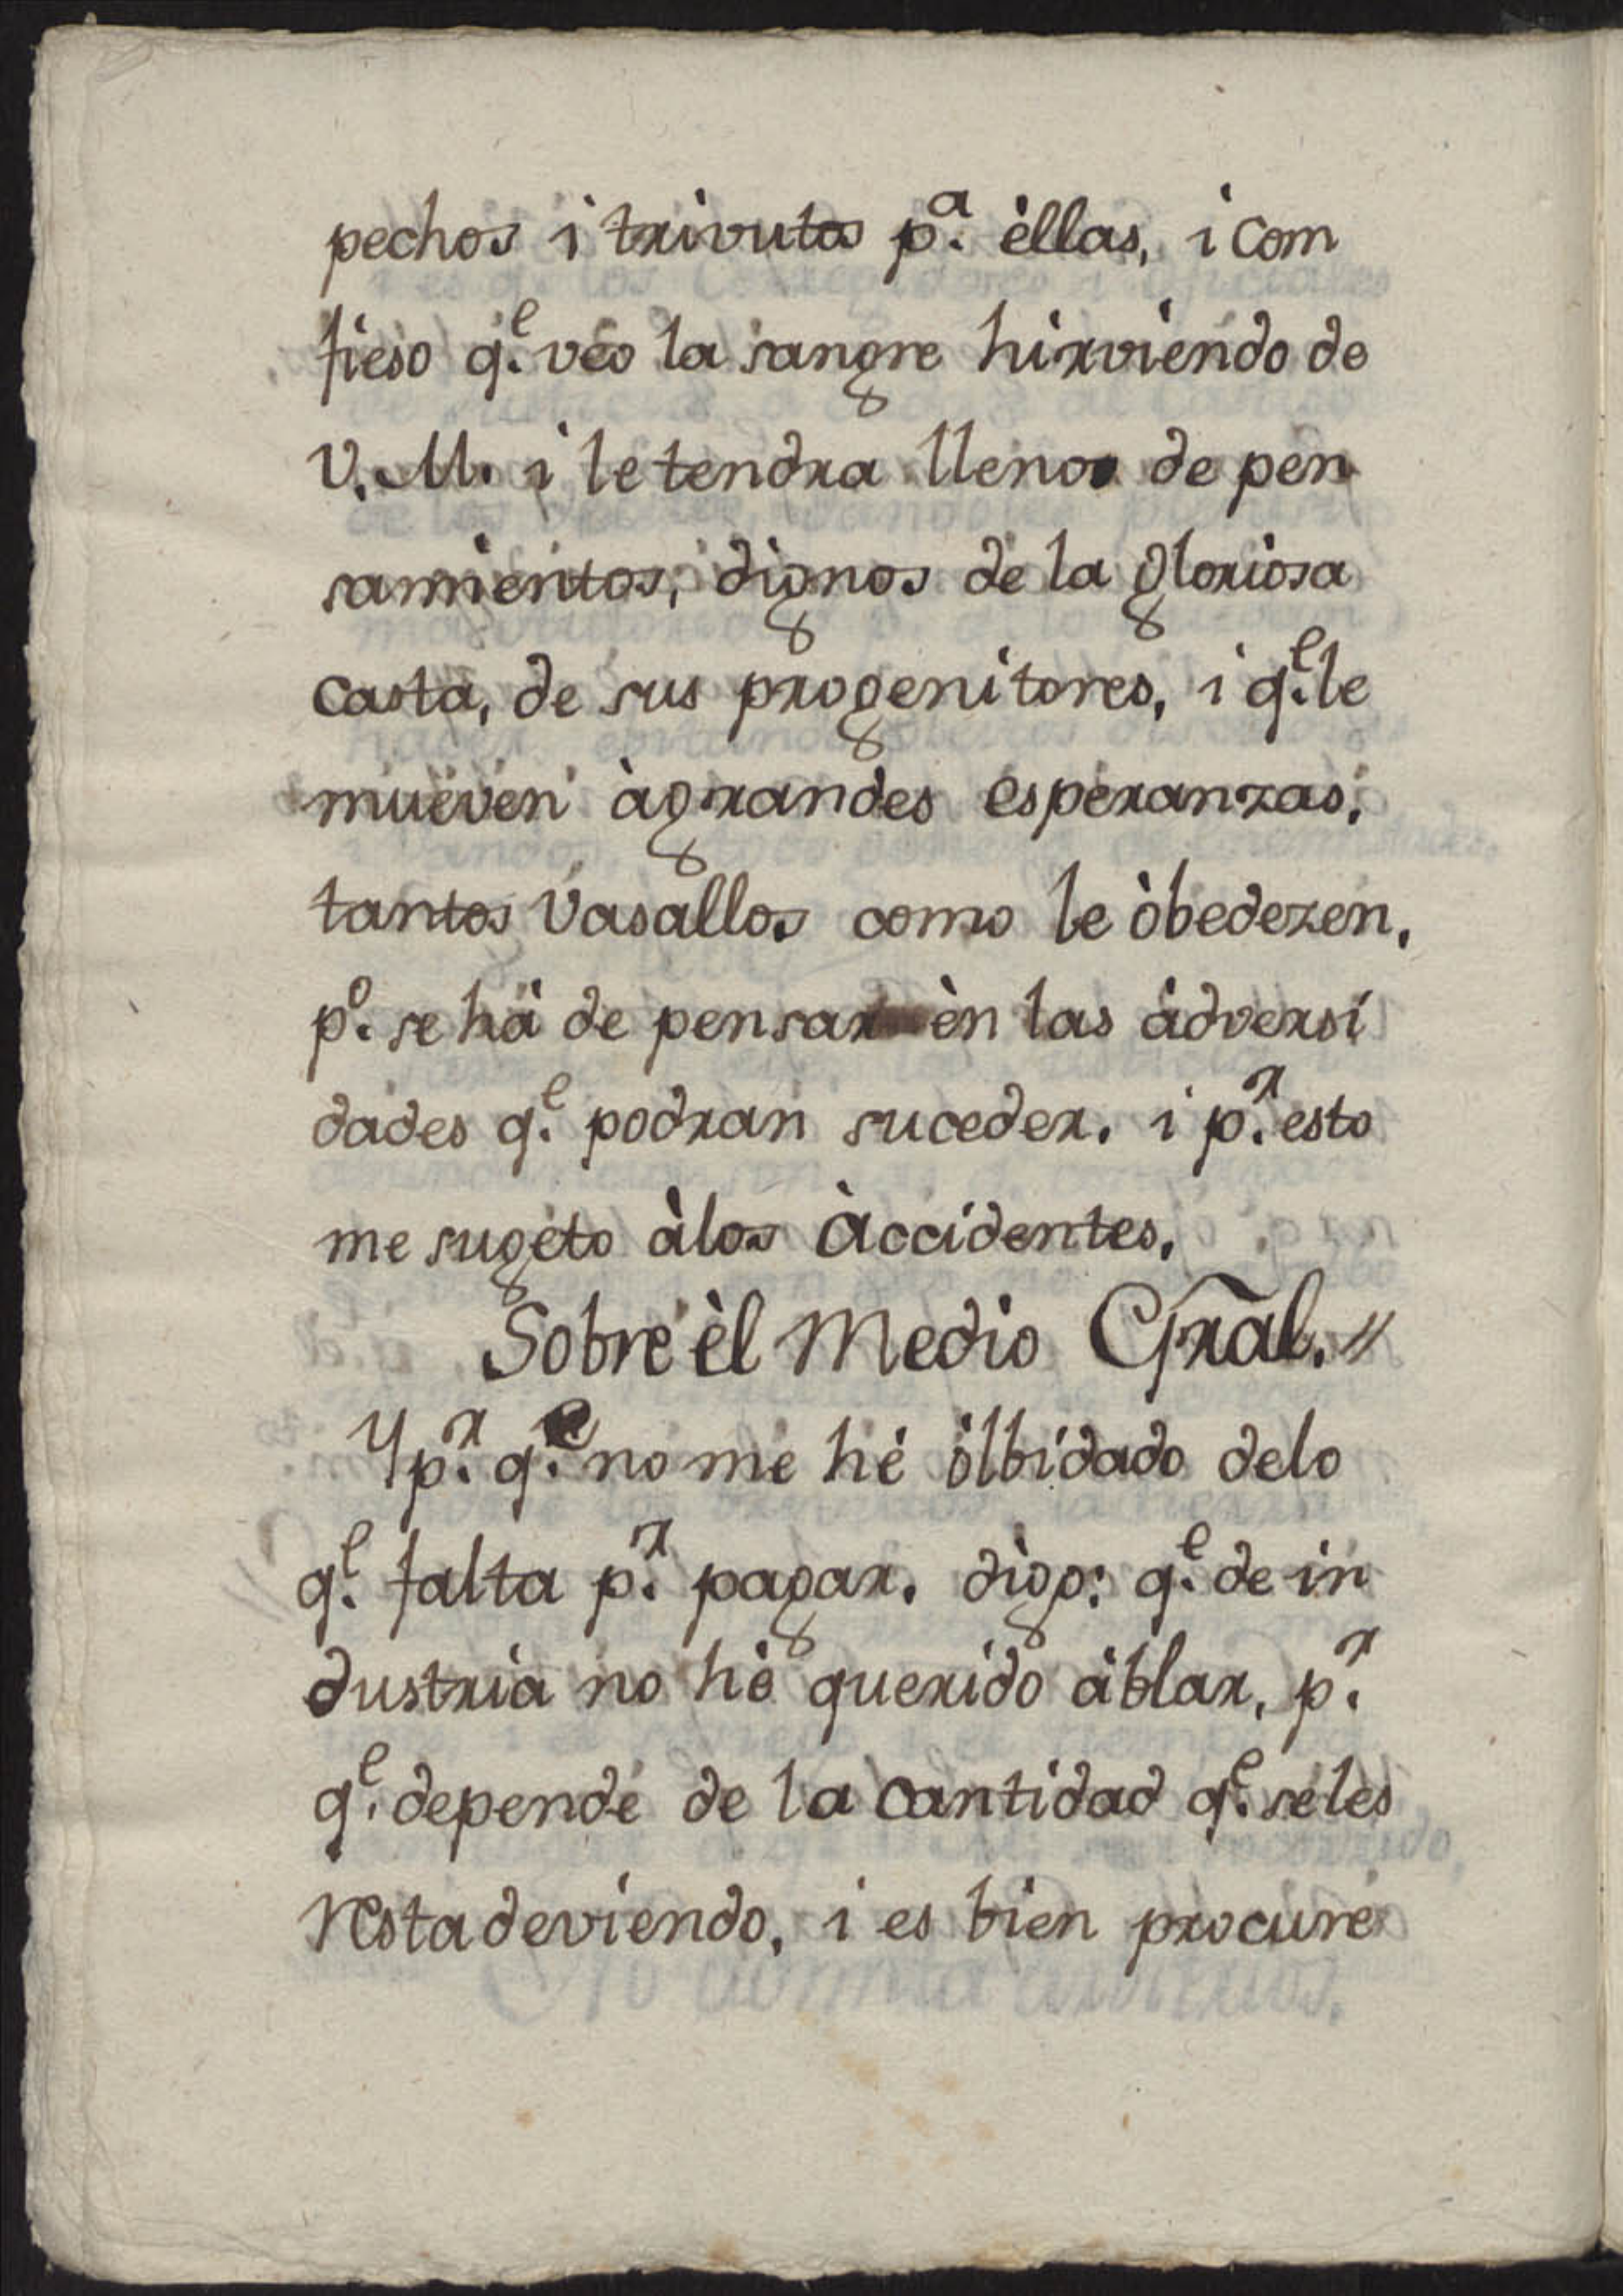 pechos i trivutos p.ª èllas, i com
fieso q.ᵉ veo la sangre hirviendo de
V. M. i le tendra llenos de pen
samientos, dignos de la gloriosa
casta, de sus progenitores, i q.ᵉ le
mueven àgrandes esperanzas,
tantos Vasallos como le òbedezen,
p.º se hà de pensar èn las àdversi
dades q.ᵉ podran suceder. i p.ʳ esto
me sugeto àlos Àccidentes.
Sobre èl Medio Gr̃al.//
Y p.ʳ q.ᵉ no me hé òlbidado delo
q.ᵉ falta p.ʳ pagar. digo: q.ᵉ de in
dustria no hè querido àblar, p.ʳ
q.ᵉ depende de la cantidad q.ᵉ seles
restadeviendo, i es bien procure